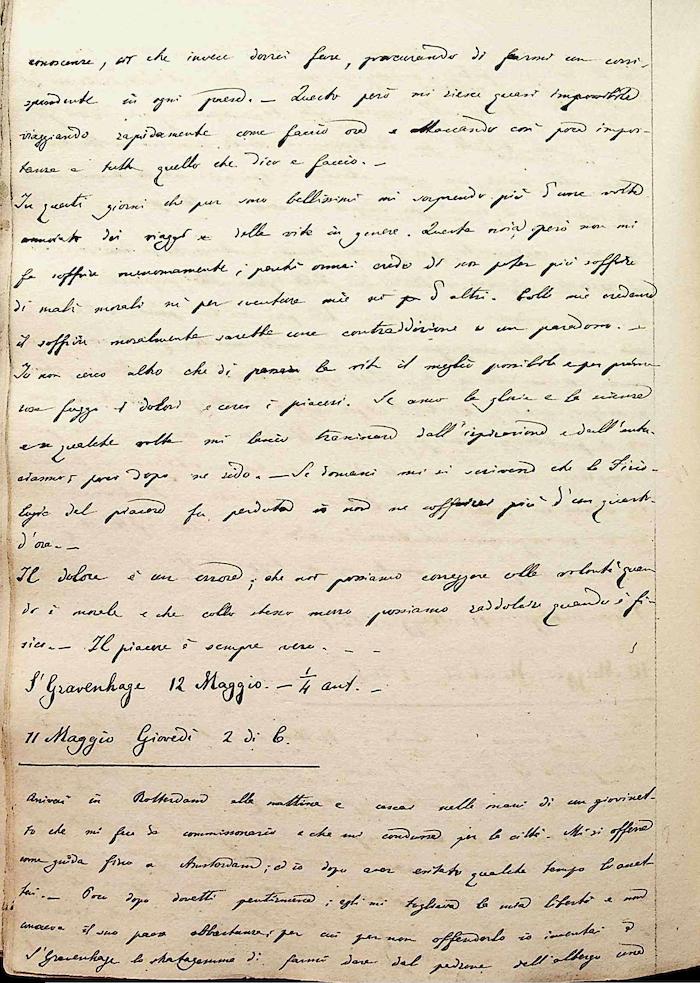 conoscenze, ciò che invece dovrei fare, procurando di farmi un corri-
spondente in ogni paese. — Questo però mi riesce quasi impossibile
viaggiando rapidamente come faccio ora e attaccando così poca impor-
tanza a tutto quello che dico e faccio. —
In questi giorni che pur sono bellissimi mi sorprendo più d'una volta
annoiato dei viaggi e della vita in genere. Questa noia però non mi
fa soffrire menomamente; perché ormai credo di non poter più soffrire
di mali morali né per sventure mie né d'altri. Colle mie credenze
il soffrire moralmente sarebbe una contraddizione o un paradosso. —
Io non cerco altro che di passare la vita il meglio possibile e per prima
cosa fuggo i dolori e cerco i piaceri. Se amo la gloria e la scienza
e se qualche volta mi lascio trascinare dall'ispirazione e dall'entu-
siasmo, poco dopo ne rido. — Se domani mi si scrivesse che la Fisio-
logia del piacere fu perduta io non ne soffrirei più d'un quarto
d'ora. —
Il dolore è un errore; che noi possiamo correggere colla volontà quan-
do è morale e che collo stesso mezzo possiamo raddolcire quando è fi-
sico. — Il piacere è sempre vero. — —
S'Gravenhage 12 Maggio. — 1/4 ant. —
11 Maggio Giovedì 2 di C.
Arrivai in Rotterdam alla mattina e cascai nelle mani di un giovinet-
to che mi fece da commissionario e che mi condusse per la città. Mi si offerse
come guida fino a Amsterdam; ed io dopo aver esitato qualche tempo lo accet-
tai. — Poco dopo dovetti pentirmene; egli mi toglieva la mia libertà e non
il suo paese abbastanza; per cui per non offenderlo io inventai a
S'Gravenhage lo stratagemma di farmi dare dal padrone dell'albergo una